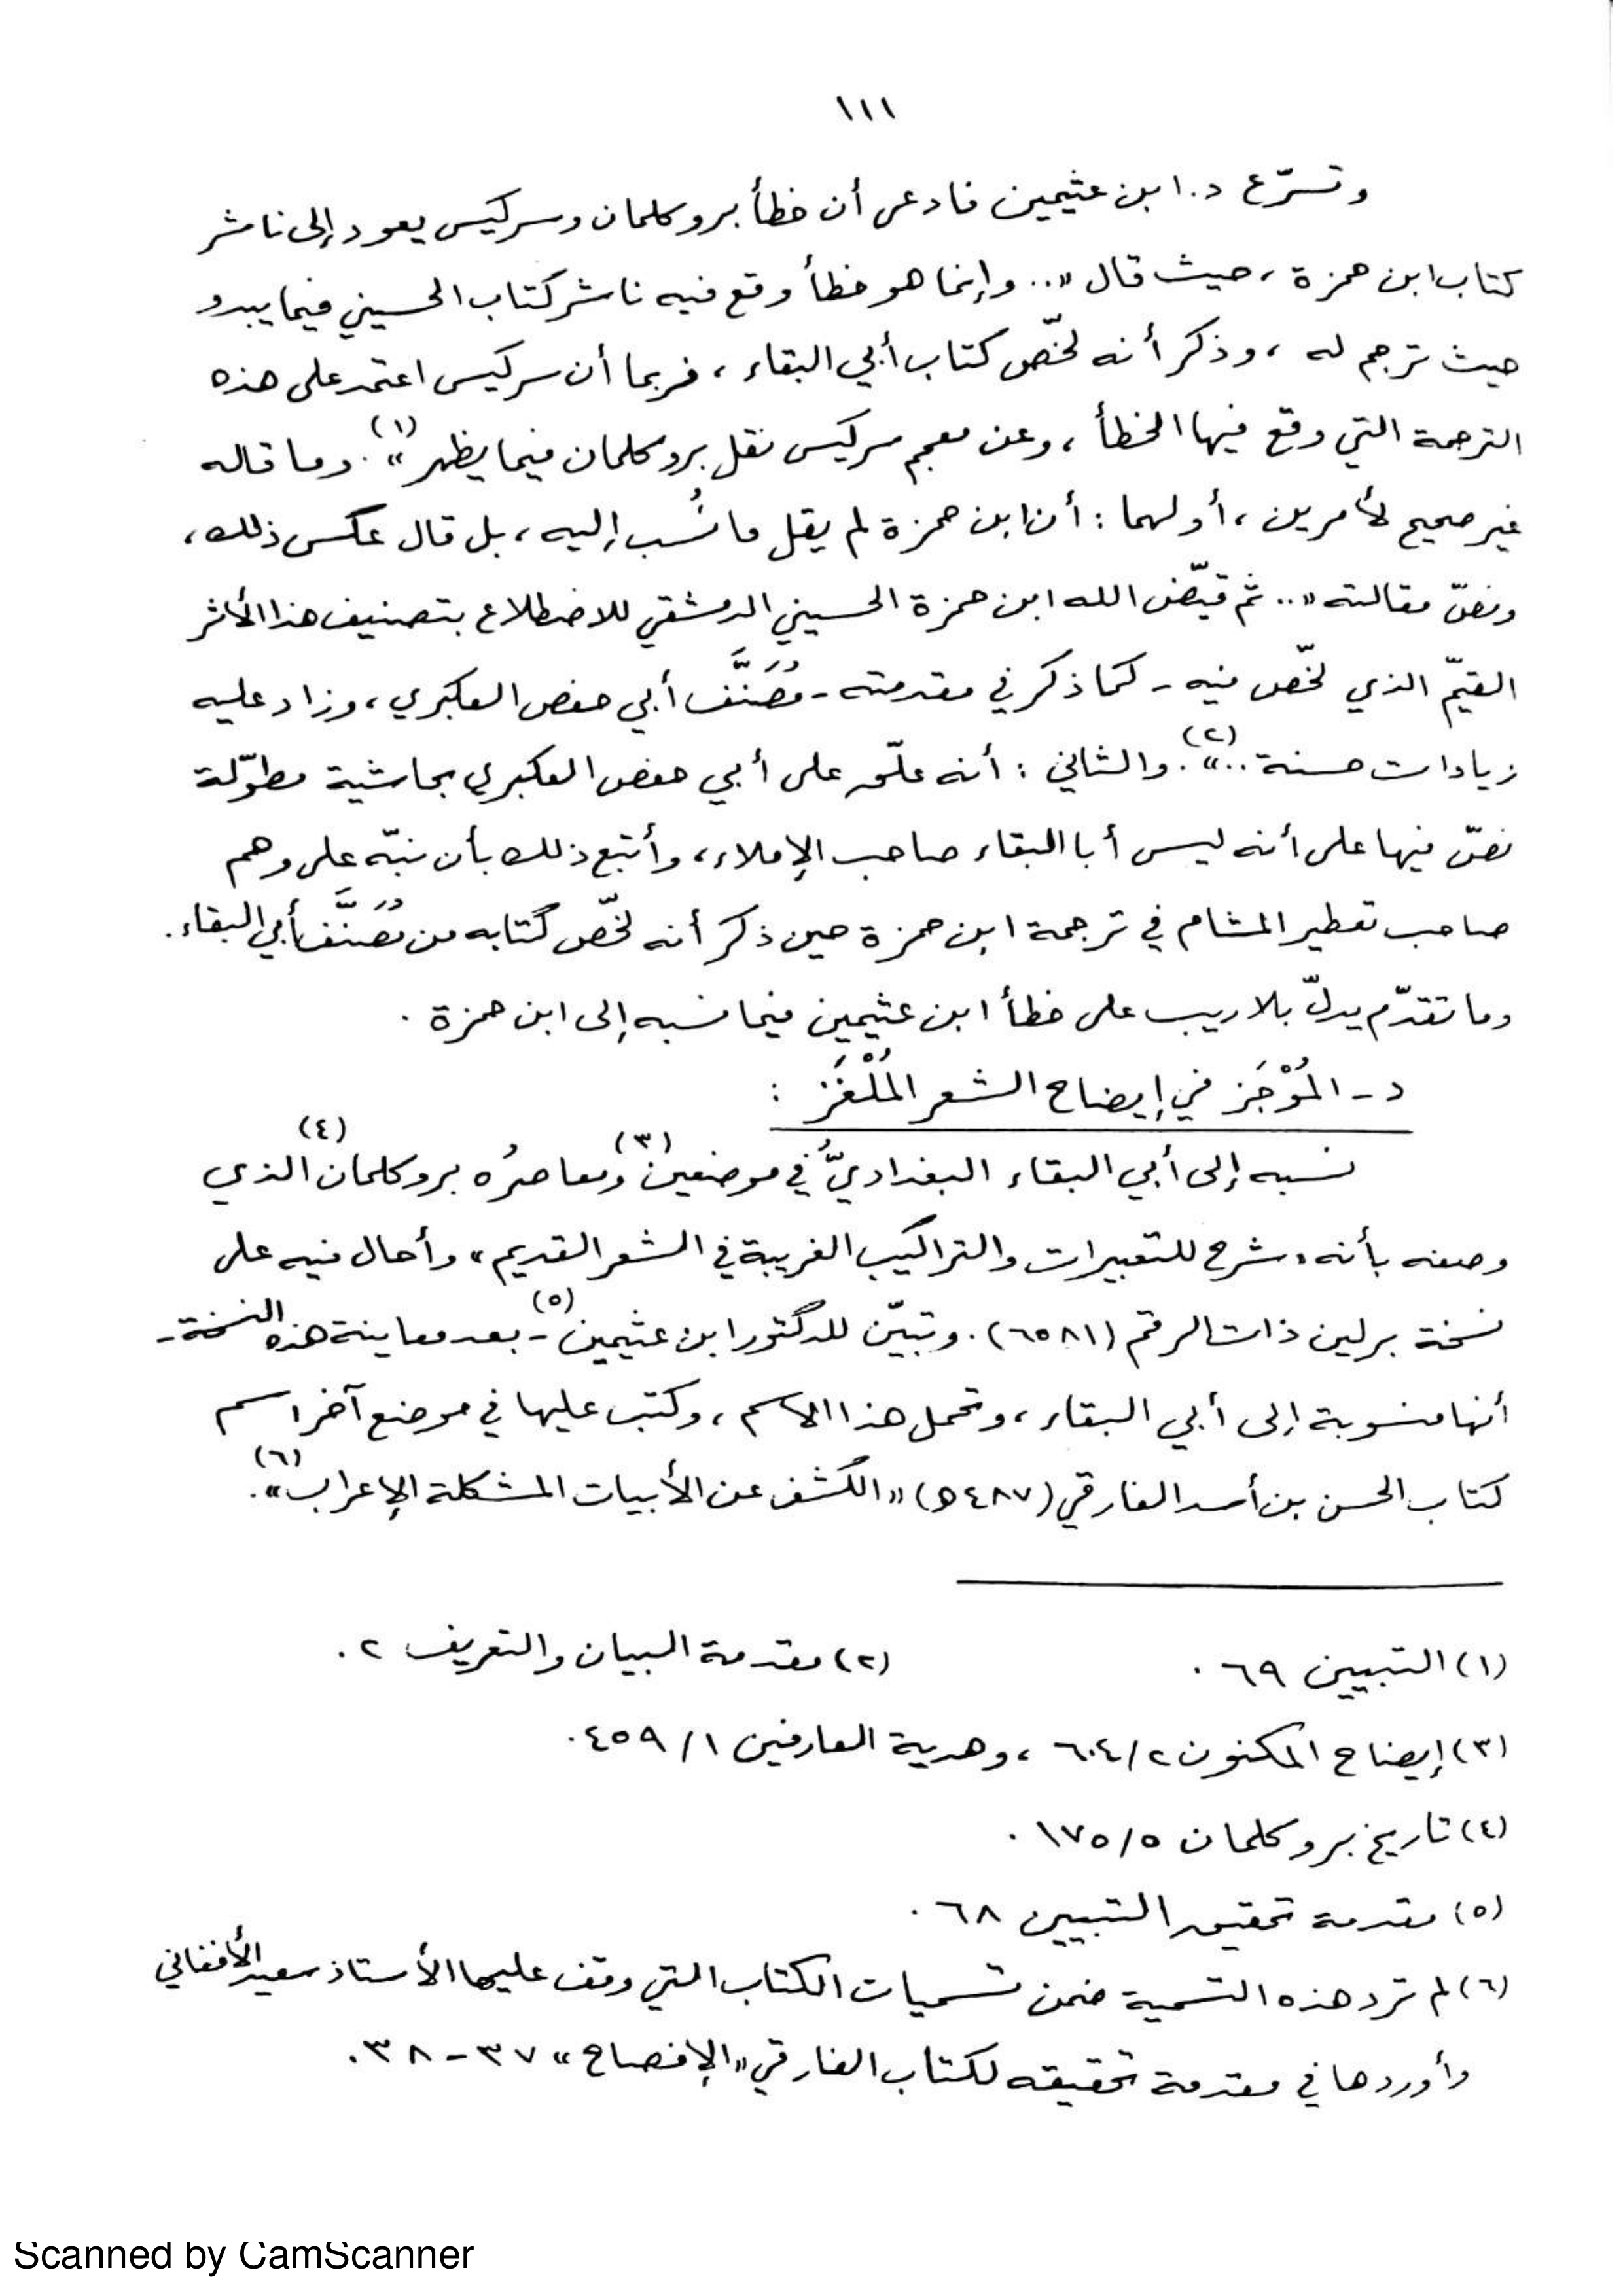 ١١١
وتسرّع د.ابن عثيمين فادعى أن خطأ بروكلمان وسركيس يعود إلى ناشر
كتاب ابن حمزة ، حيث قال «.. وإنما هو خطأ وقع فيه ناشر كتاب الحسيني فيما يبدو
حيث ترجم له ، وذكر أنه لخّص كتاب أبي البقاء ، فربما أن سركيس اعتمد على هذه
الترجمة التي وقع فيها الخطأ ، وعن معجم سركيس نقل بروكلمان فيما يظهر»(١). وما قاله
غير صحيح لأمرين ، أولهما : أن ابن حمزة لم يقل ما نُسب إليه ، بل قال عكس ذلك ،
ونصّ مقالته «.. ثم قيّض الله ابن حمزة الحسيني الدمشقي للاضطلاع بتصنيف هذا الأثر
القيّم الذي لخّص فيه - كما ذكر في مقدمته - مُصَنَّف أبي حفص العكبري ، وزاد عليه
زيادات حسنة ..»(٢). والثاني : أنه علّق على أبي حفص العكبري بحاشية مطوّلة
نصّ فيها على أنه ليس أبا البقاء صاحب الإملاء ، وأتبع ذلك بأن نبّه على وهم
صاحب تعطير المشام في ترجمة ابن حمزة حين ذكر أنه لخّص كتابه من مُصَنَّف أبي البقاء .
وما تقدّم يدلّ بلا ريب على خطأ ابن عثيمين فيما نسبه إلى ابن حمزة .
د - المُوْجَز في إيضاح الشعر المُلْغَز :
نسبه إلى أبي البقاء البغداديُّ في موضعين(٣) ومعاصرُه بروكلمان(٤) الذي
وصفه بأنه «شرح للتعبيرات والتراكيب الغريبة في الشعر القديم» وأحال فيه على
نسخة برلين ذات الرقم (٦٥٨١). وتبيّن للدكتور ابن عثيمين(٥) - بعد معاينة هذه النسخة -
أنها منسوبة إلى أبي البقاء ، وتحمل هذا الاسم ، وكتب عليها في موضع آخر اسم
كتاب الحسن بن أسد الفارقي (٤٨٧ هـ) «الكشف عن الأبيات المشكلة الإعراب»(٦).
(١) التبيين ٦٩ . (٢) مقدمة البيان والتعريف ٢ .
(٣) إيضاح المكنون ٢/ ٦٠٤ ، وهدية العارفين ١/ ٤٥٩ .
(٤) تاريخ بروكلمان ٥/ ١٧٥ .
(٥) مقدمة تحقيق التبيين ٦٨ .
(٦) لم ترد هذه التسمية ضمن تسميات الكتاب التي وقف عليها الأستاذ سعيد الأفغاني
وأوردها في مقدمة تحقيقه لكتاب الفارقي «الإفصاح» ٣٧ - ٣٨ .
Scanned by CamScanner